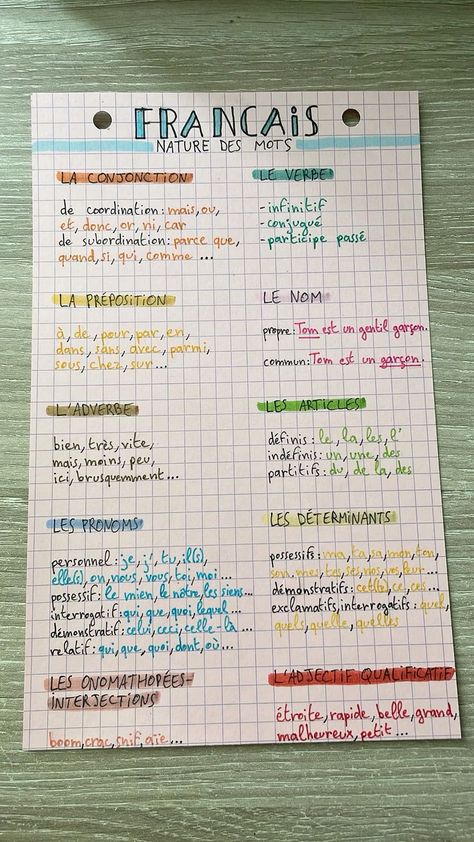 FRANCAIS
NATURE DES MOTS
LA CONJONCTION
de coordination: mais, ou,
et, donc, or, ni, car
de subordination: parce que,
quand, si, qui, comme ...
LE VERBE
-infinitif
-conjugué
-participe passé
LA PRÉPOSITION
à, de, pour, par, en,
dans, sans, avec, parmi,
sous, chez, sur...
LE NOM
propre: Tom est un gentil garçon.
commun: Tom est un garçon.
L'ADVERBE
bien, très, vite,
mais, moins, peu,
ici, brusquement...
LES ARTICLES
définis: le, la, les, l'
indéfinis: un, une, des
partitifs: du, de la, des
LES PRONOMS
personnel: je, j', tu, il(s),
elle(s), on, nous, vous, toi, moi...
possessif: le mien, le nôtre, les siens...
interrogatif: qui, que, quoi, lequel...
démonstratif: celui, ceci, celle-là...
relatif: qui, que, quoi, dont, où...
LES DÉTERMINANTS
possessifs: ma, ta, sa, mon, ton,
son, mes, tes, ses, nos, vos, leur...
démonstratifs: cet(te), ce, ces...
exclamatifs, interrogatifs: quel,
quels, quelle, quelles
LES ONOMATHOPÉES-
INTERJECTIONS
boom, crac, snif, aïe...
L'ADJECTIF QUALIFICATIF
étroite, rapide, belle, grand,
malheureux, petit...